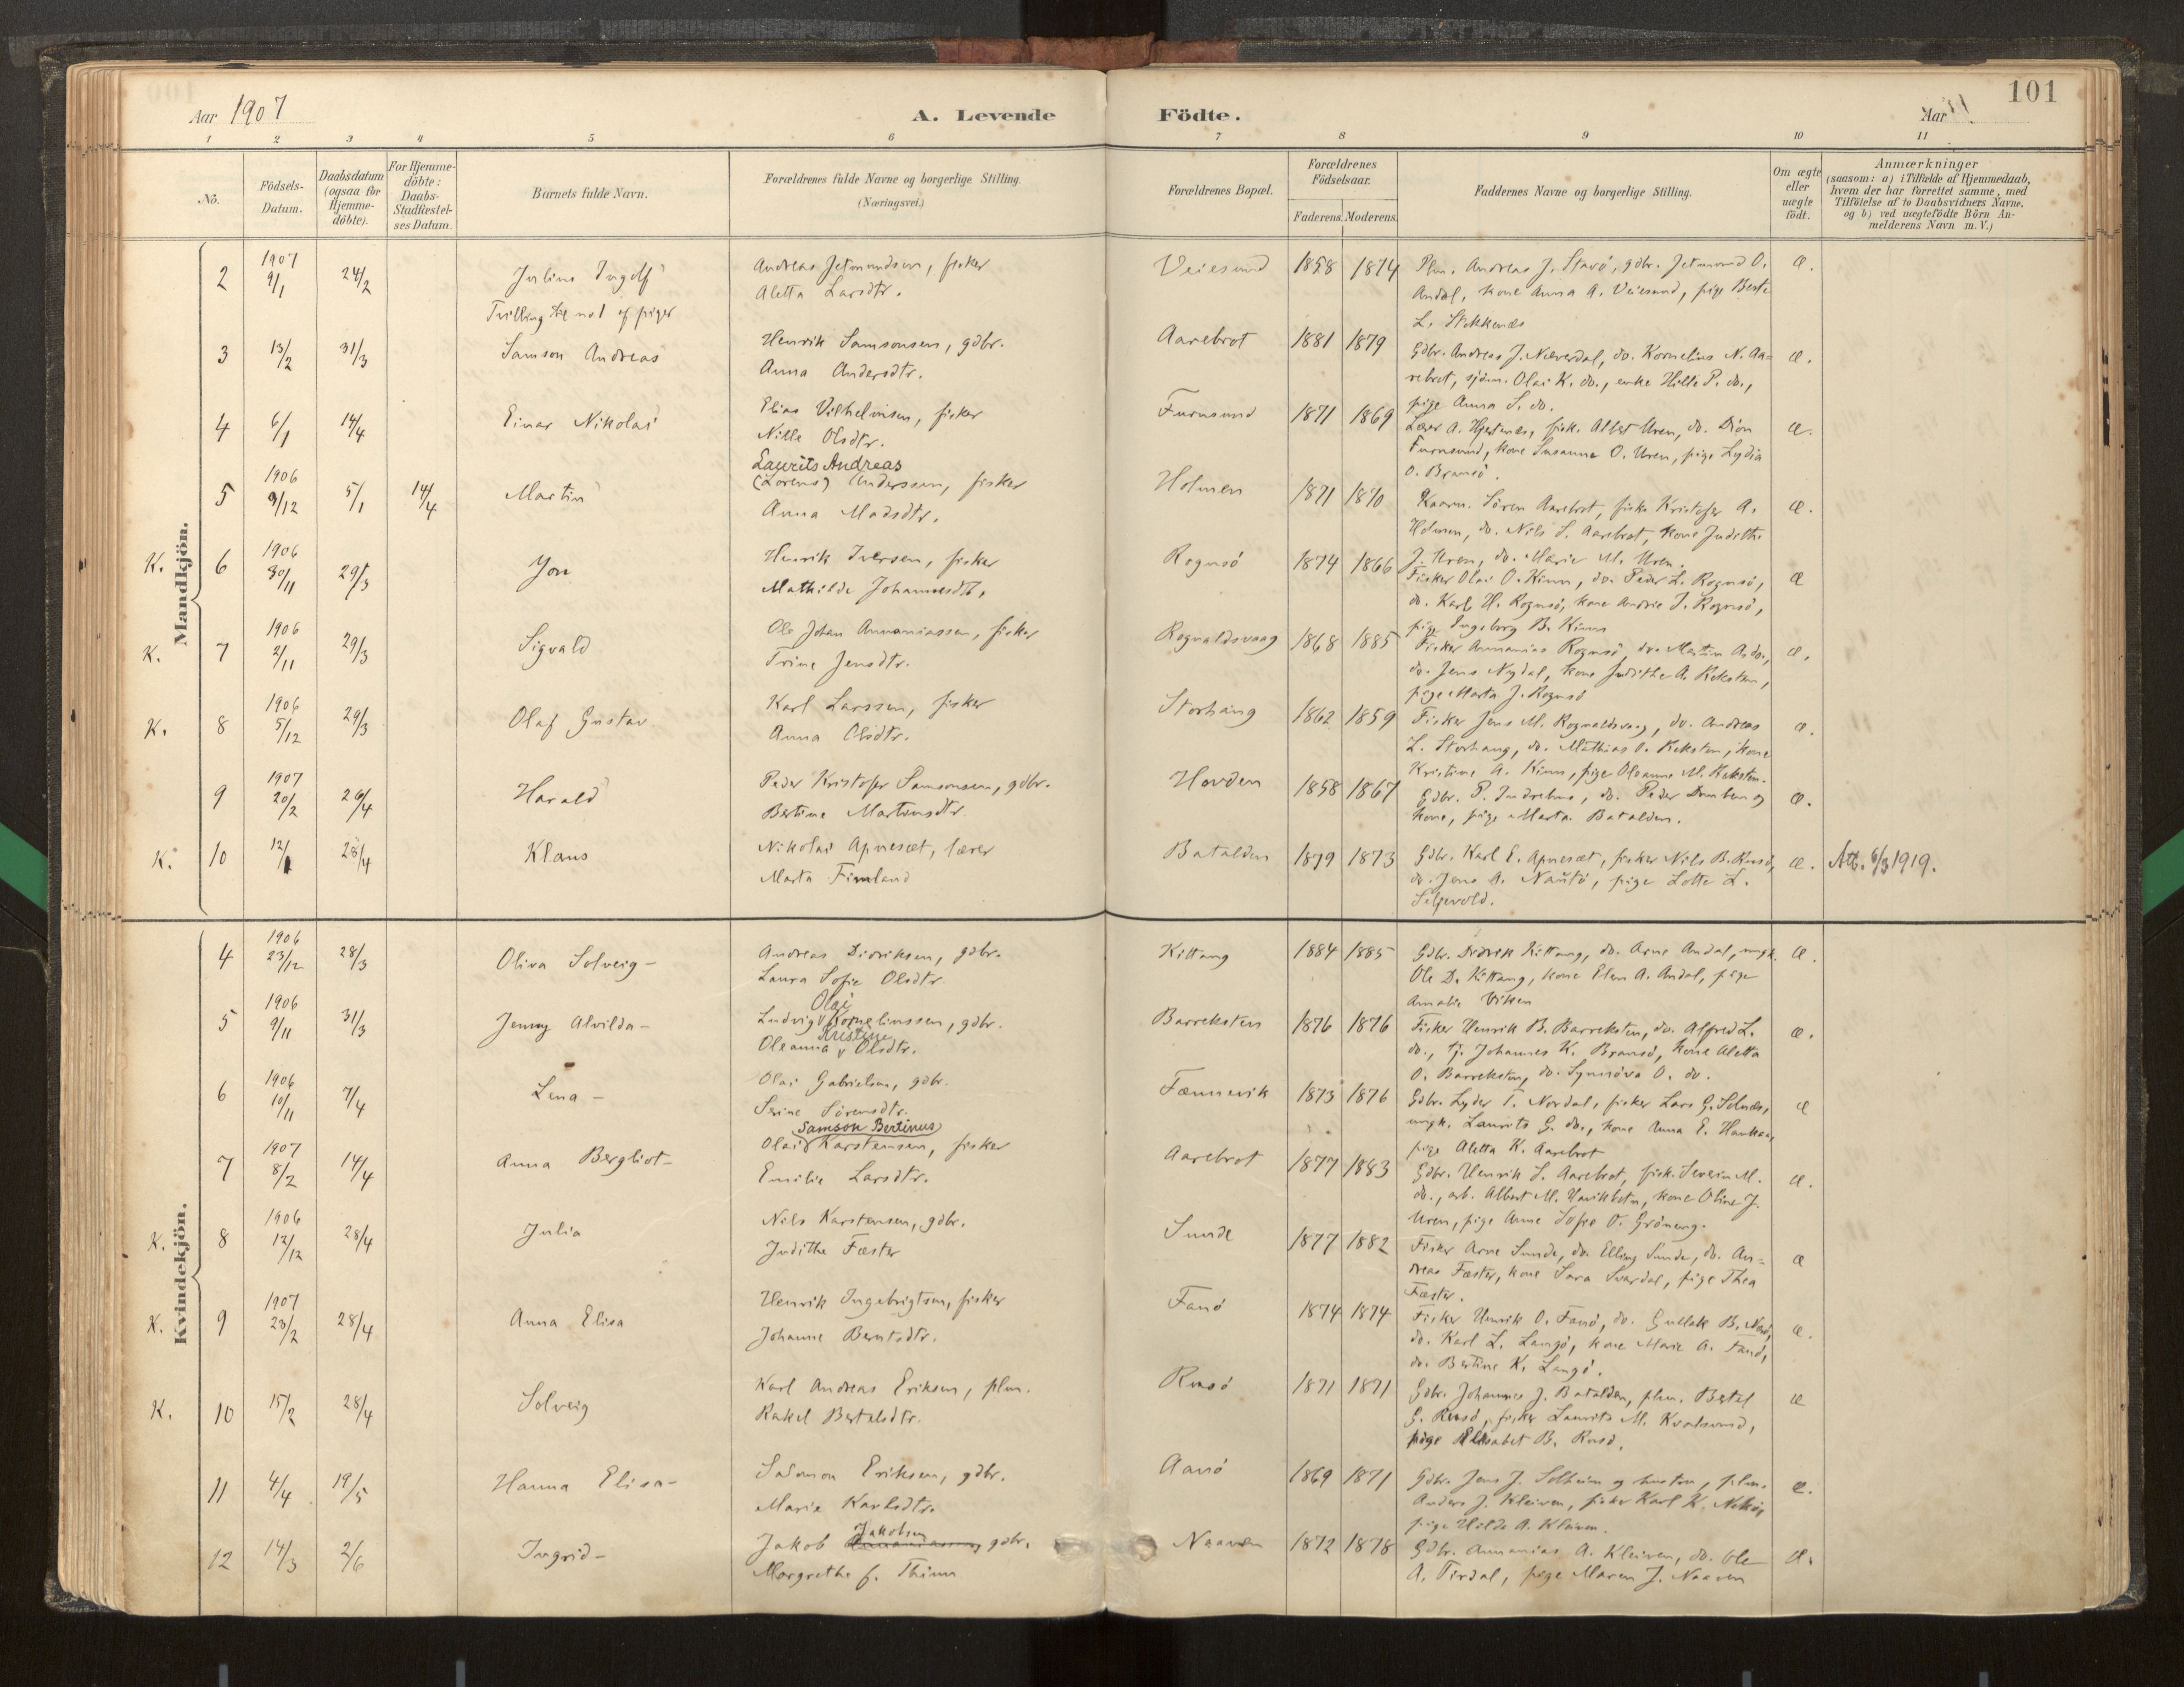 101
Aar 1907
A. Levende Födte.
Aar
1 2 3 4 5 6 7 8 9 10 11
No.
Födsels-Datum.
Daabsdatum (ogsaa for Hjemme-döbte).
For Hjemme-döbte: Daabs-Stadfæstel-ses Datum.
Barnets fulde Navn.
Forældrenes fulde Navne og borgerlige Stilling.
(Næringsvei.)
Forældrenes Bopæl.
Forældrenes Födselsaar.
Faderens. Moderens.
Faddernes Navne og borgerlige Stilling.
Om ægte eller uægte födt.
Anmærkninger
(saasom: a) i Tilfælde af Hjemmedaab,
hvem der har forrettet samme, med
Tilföielse af to Daabsvidners Navne,
og b) ved uægtefödte Börn An-
melderens Navn m. V.)
Mandkjön.
2 1907 9/1 24/2 Julius Ingolf Andreas Jetmundsen, fisker Veiesund 1858 1874 Plm. Andreas J. Stavö, gdbr. Jetmund O. æ.
Tvilling til no 1 af piger Aletta Larsdtr. Andal, kone Anna A. Veiesund, pige Berte
L. Stokkenæs
3 13/2 31/3 Samson Andreas Henrik Samsonsen, gdbr. Aarebrot 1881 1879 Gdbr. Andreas J. Næverdal, do. Kornelius N. Aa= æ.
Anna Andersdtr. rebrot, sjöm. Olai K. do., enke Hilte P. do.,
pige Anna S. do.
4 6/1 14/4 Einar Nikolai Elias Vilhelmsen, fisker Furusund 1871 1869 Lærer A. Hjertenæs, fisk. Albert Uren, do. Dion æ.
Nille Olsdtr. Furusund, kone Susanne O. Uren, pige Lydia
O. Bransö.
5 1906 9/12 5/1 14/4 Martin Laurits Andreas
(Lorens) Anderssen, fisker Holmen 1871 1870 Sören Aarebrot, fisker Kristofer A. æ.
Anna Madsdtr. Holmen, do. Nils S. Aarebrot, kone Judithe
J. Uren, do. Marie M. Uren.
K. 6 1906 30/11 29/3 Jon Henrik Iversen, fisker Rognsö 1874 1866 Fisker Olai O. Kinn, do. Peder L. Rognsö, æ
Mathilde Johannesdtr. do. Karl H. Rognsö, kone J. Rognsö,
pige Ingeborg B. Kinn
K. 7 1906 2/11 29/3 Sigvald Ole Johan Annaniassen, fisker Rognaldsvaag 1868 1885 Fisker Annanias Rognsö, do. Martin A. do., æ.
Trine Jensdtr. do. Jens Nydal, kone Judithe A. Reksten,
pige Marta J. Rognsö
K. 8 1906 5/12 29/3 Olaf Gustav Karl Larssen, fisker Storhaug 1862 1859 Fisker Jens M. Rognaldsvaag, do. Andreas æ.
Anna Olsdtr. L. Storhaug, do. Mathias O. Reksten, kone
Kristine A. Kinn, pige Oleanne M. Reksten.
9 1907 20/2 26/4 Harald Peder Kristofer Samsonsen, gdbr. Hovden 1858 1867 Gdbr. P. Indrehus, do. Peder og æ.
Bertine Martinusdtr kone, pige Marta Batalden.
K. 10 12/1 28/4 Klaus Nikolai Apnesæt, lærer Batalden 1879 1873 Gdbr. Karl E. Apnesæt, fisker Nils B. Rusö, æ. Att. 6/3 1919.
Marta Fimland do. Jens A. Nautö, pige Lotte L.
Seljevold.
Kvindekjön.
4 1906 23/12 28/3 Oliva Solveig - Andreas Didriksen, gdbr. Kittang 1884 1885 Gdbr. Didrik Kittang, do. Arne Andal, ungk. æ.
Laura Sofie Olsdtr. Ole D. Kittang, kone Elen A. Andal, pige
Amalie Viken
5 1906 9/11 31/3 Jenny Alvilda - Olai
Ludvig Kornelinssen, gdbr. Barreksten 1876 1876 Fisker Henrik B. Barreksten, do. Alfred L. æ.
Kristine
Oleanna Olsdtr. do., tj. Johannes K. Bransö, kone Aletta
O. Barreksten, do. Synnöva O. do.
6 1906 10/11 7/4 Lena - Olai Gabrielsen, gdbr. Fænnevik 1873 1876 Gdbr. Lyder T. Nordal, fisker Lars G. Solnæs, æ
Serine Sörensdtr. ungk. Laurits G. do., kone Anna E.
pige Aletta K. Aarebrot
7 1907 8/2 14/4 Anna Bergliot - Samson Bertinus
Olai Karstensen, fisker Aarebrot 1877 1883 Gdbr. Henrik S. Aarebrot, fisk. Severin M. æ.
Emilie Larsdtr. do., arb. Albert M. kone Oline J.
Uren, pige Anne Sofie O. Gröneng.
K. 8 1906 12/12 28/4 Julia Nils Karstensen, gdbr. Sunde 1877 1882 Fisker Arne Sunde, do. Elling Sunde, do. An= æ
Judithe Fæster dreas Fæster, kone Sara Svardal, pige Thea
Fæster.
K. 9 1907 23/2 28/4 Anna Elisa Henrik Ingebrigtsen, fisker Fanö 1874 1874 Fisker Henrik O. Fanö, do. Gullak B. æ.
Johanne Berntsdtr. do. Karl L. Langö, kone Marie A. Fanö,
do. Bertine K. Langö.
K. 10 15/2 28/4 Solveig Karl Andreas Eriksen, plm. Rusö 1871 1871 Gdbr. Johannes J. Batalden, plm. Bertel æ
Rakel Bertelsdtr. G. Rusö, fisker Laurits M. Kvalsund,
pige Elisabet B. Rusö.
11 4/4 19/5 Hanna Elisa - Salomon Eriksen, gdbr. Aanö 1869 1871 Gdbr. Jens J. Solheim og hustru, plm. æ.
Marie Karlsdtr. Anders J. Kleiven, fisker Karl K.
pige Hilda A. Kleiven.
12 14/3 2/6 Ingrid - Jakobsen
Jakob gdbr. Naaven 1872 1878 Gdbr. Annanias A. Kleiven, do. Ole æ.
Margrethe f. Thinn A. Tirdal, pige Maren J. Naaven